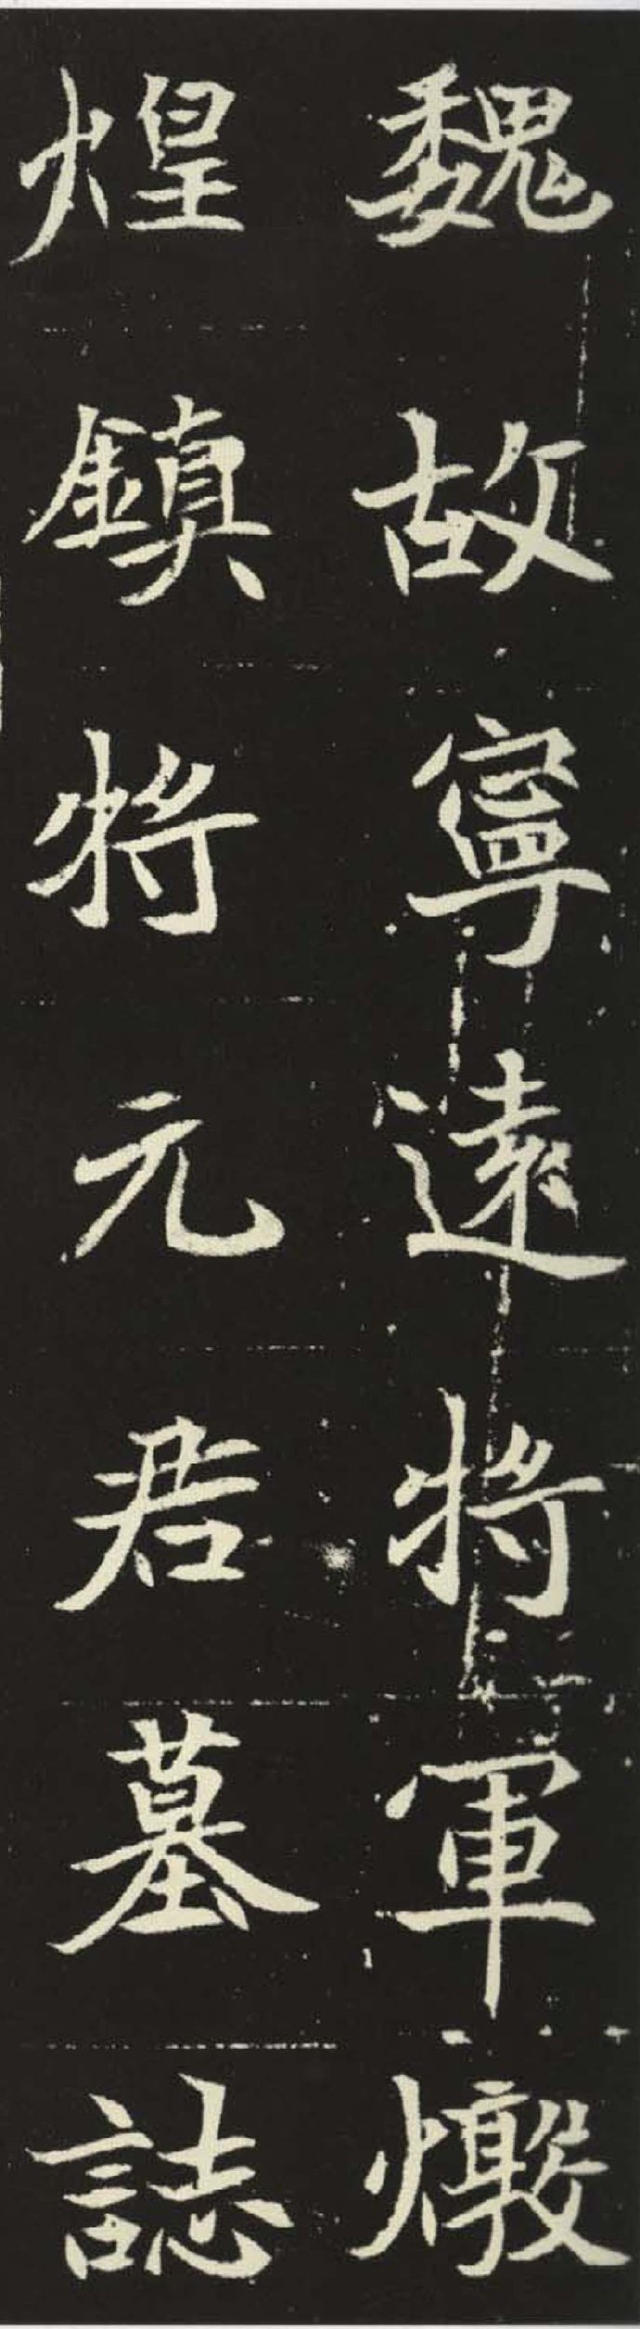 魏故寧遠將軍燉
煌鎮將元君墓誌